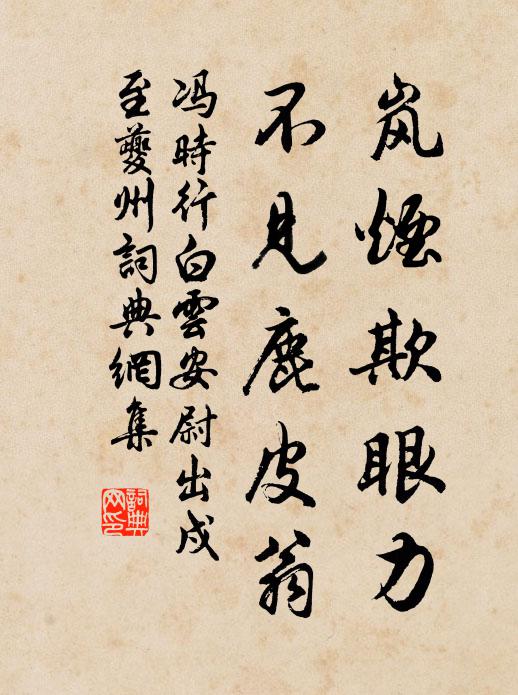 岚煙欺眼力
不見鹿皮翁
冯時行白雲安尉出戍
至夔州詞典網集
詞典
网印